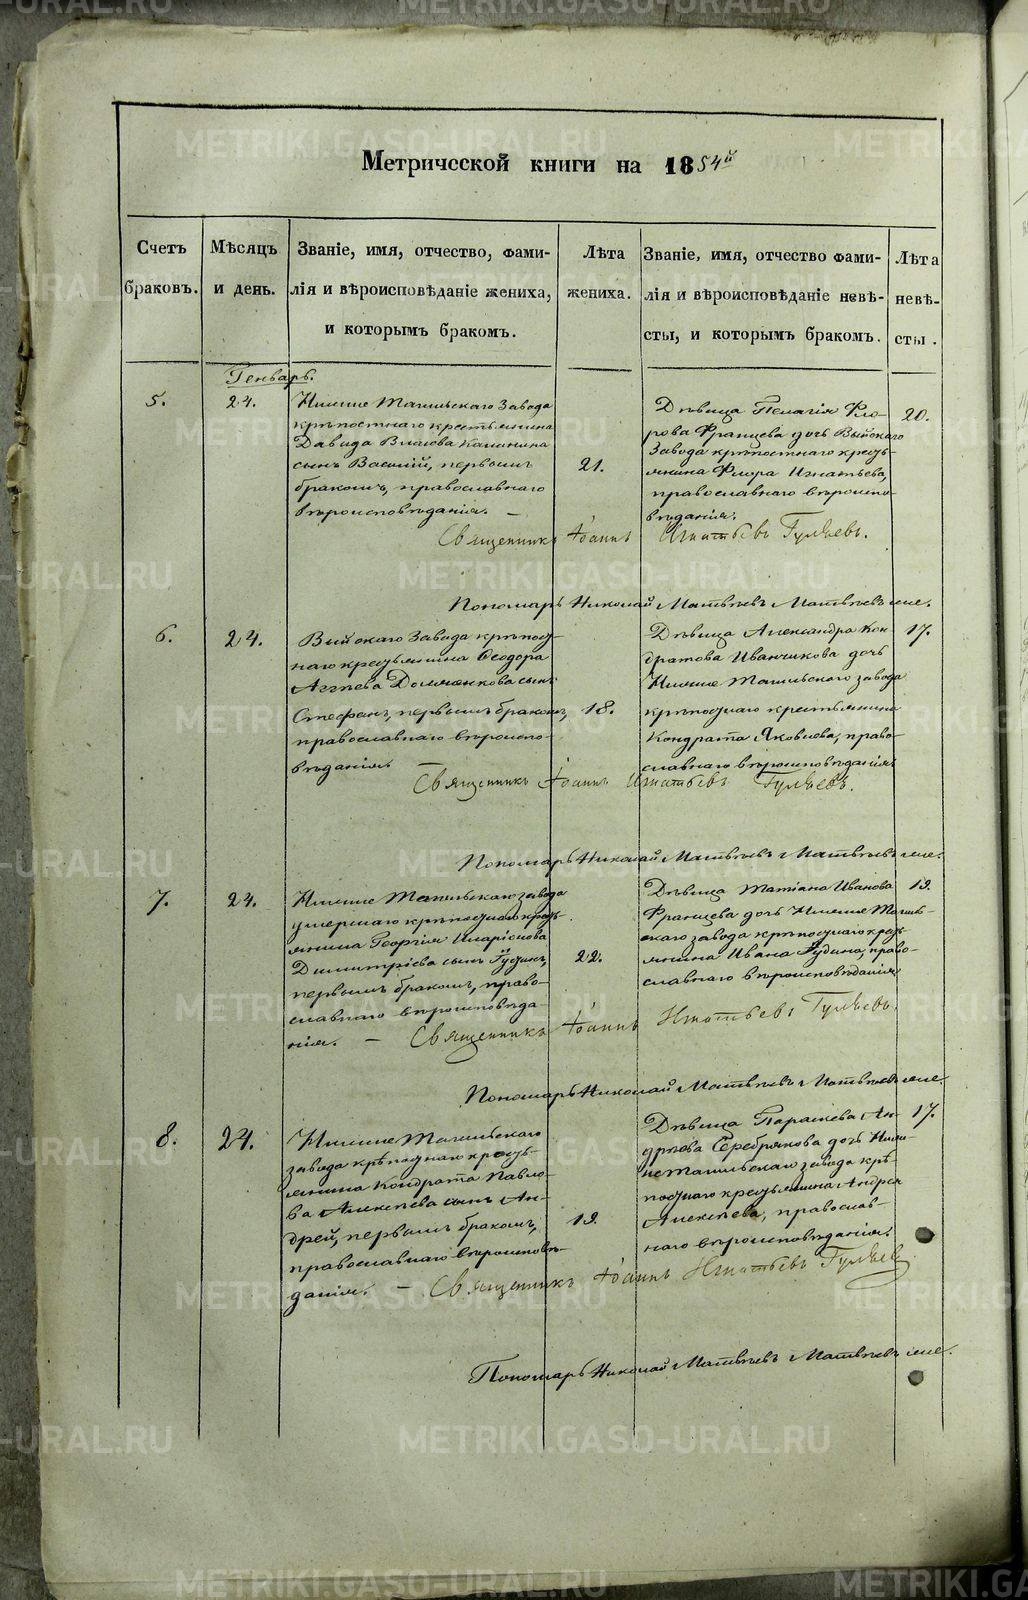 Метрической книги на 1854й
Счетъ браковъ.
Мѣсяцъ и день.
Званіе, имя, отчество, фами-
лія и вѣроисповѣданіе жениха,
и которымъ бракомъ.
Лѣта
жениха.
Званіе, имя, отчество фами-
лія и вѣроисповѣданіе невѣ-
сты, и которымъ бракомъ.
Лѣта
невѣ-
сты.
Генварь.
5.
24.
Нижне Тагильскаго Завода
крѣпостнаго крестьянина
Давида Власова Калинина
сынъ Василій, первымъ
бракомъ, православнаго
вѣроисповѣданія. —
21.
Дѣвица Пелагія Фло-
рова Францева дочь Выйскаго
Завода крѣпостнаго кресть-
янина Флора Игнатьева,
православнаго вѣроиспо-
вѣданія.
20.
Священникъ Іоаннъ Игнатьевъ Гуляевъ.
Пономарь Николай Матвѣевъ Матвѣевъ
6.
24.
Выйскаго Завода крѣпост-
наго крестьянина Ѳеодора
Аггѣева сынъ
Стефанъ, первымъ бракомъ,
православнаго вѣроиспо-
вѣданія
18.
Дѣвица Александра Кон-
дратова Иванчикова дочь
Нижне Тагильскаго завода
крѣпостнаго крестьянина
Кондрата Яковлева, право-
славнаго вѣроисповѣданія
17.
Священникъ Іоаннъ Игнатьевъ Гуляевъ.
Пономарь Николай Матвѣевъ Матвѣевъ
7.
24.
Нижне Тагильскаго завода
умершаго крѣпостнаго кресть-
янина Георгія Иларіонова
Димитріева сынъ
первымъ бракомъ, право-
славнаго вѣроисповѣда-
нія. —
22.
Дѣвица Татіана Иванова
Францева дочь Нижне Тагиль-
скаго завода крѣпостнаго кресть-
янина Ивана право-
славнаго вѣроисповѣданія
19.
Священникъ Іоаннъ Игнатьевъ Гуляевъ.
Пономарь Николай Матвѣевъ Матвѣевъ
8.
24.
Нижне Тагильскаго
завода крѣпостнаго кресть-
янина Кондрата Павло-
ва Алексѣева сынъ Ан-
дрей, первымъ бракомъ,
православнаго вѣроисповѣ-
данія. —
19.
Дѣвица Параскева Ан-
дреева Серебрякова дочь Ниж-
не Тагильскаго завода крѣ-
постнаго крестьянина Андрея
Алексѣева, православ-
наго вѣроисповѣданія.
17.
Священникъ Іоаннъ Игнатьевъ Гуляевъ
Пономарь Николай Матвѣевъ Матвѣевъ
METRIKI.GASO-URAL.RU